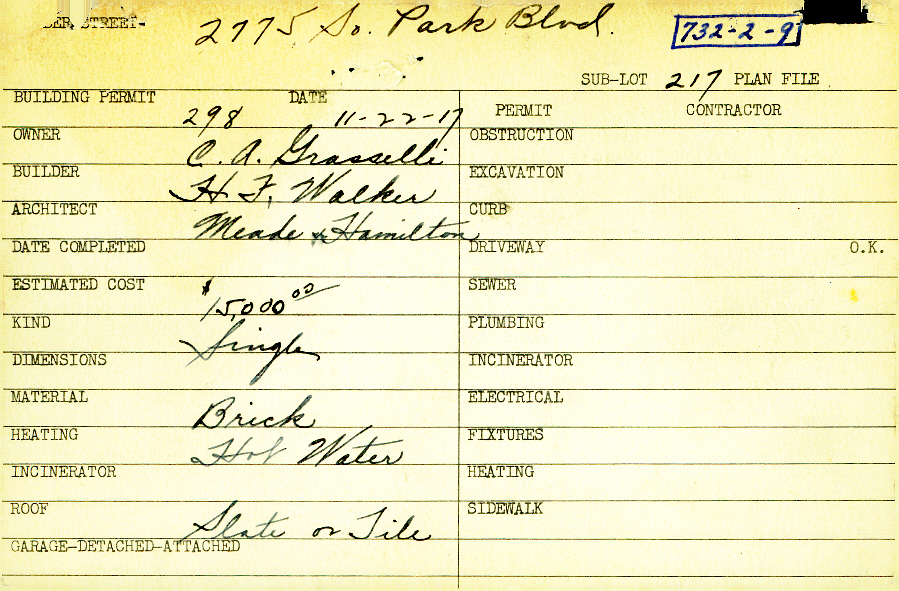 STREET- 2775 So. Park Blvd. 732-2-9
SUB-LOT 217 PLAN FILE
BUILDING PERMIT 298 DATE 11-22-17
PERMIT CONTRACTOR
OWNER C. A. Grasselli
OBSTRUCTION
BUILDER H. F. Walker
EXCAVATION
ARCHITECT Meade & Hamilton
CURB
DATE COMPLETED
DRIVEWAY O.K.
ESTIMATED COST $15,000.00
SEWER
KIND Single
PLUMBING
DIMENSIONS
INCINERATOR
MATERIAL Brick
ELECTRICAL
HEATING Hot Water
FIXTURES
INCINERATOR
HEATING
ROOF Slate or Tile
SIDEWALK
GARAGE-DETACHED-ATTACHED